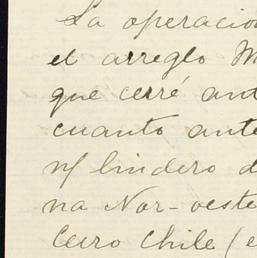 La operacion
el arreglo M
que cerré ant
cuanto ante
n/ lindero d
na Nor-oeste
Cerro Chile (e